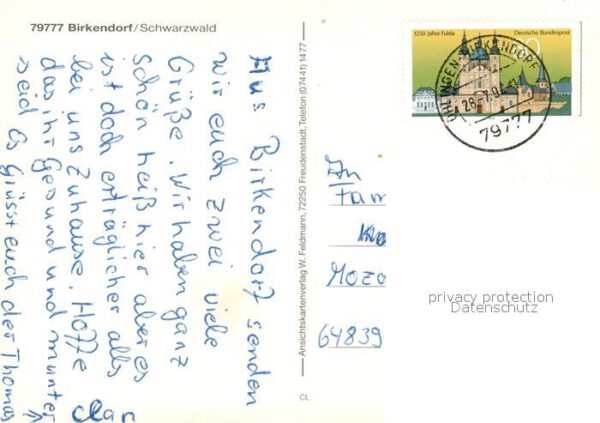 79777 Birkendorf/Schwarzwald
Aus Birkendorf senden
wir euch zwei viele
Grüße. Wir haben ganz
schön heiß hier aber es
ist doch erträglicher alls
bei uns zuhause. Hoffe
das ihr gesund und munter
seid Es grüsst euch der Thomas
Ansichtskartenverlag W. Feldmann, 72250 Freudenstadt, Telefon (07441) 1477
CL
1250 Jahre Fulda Deutsche Bundespost
ÜHLINGEN-BIRKENDORF
79777
An
Fam
Moza
64839
privacy protection
Datenschutz